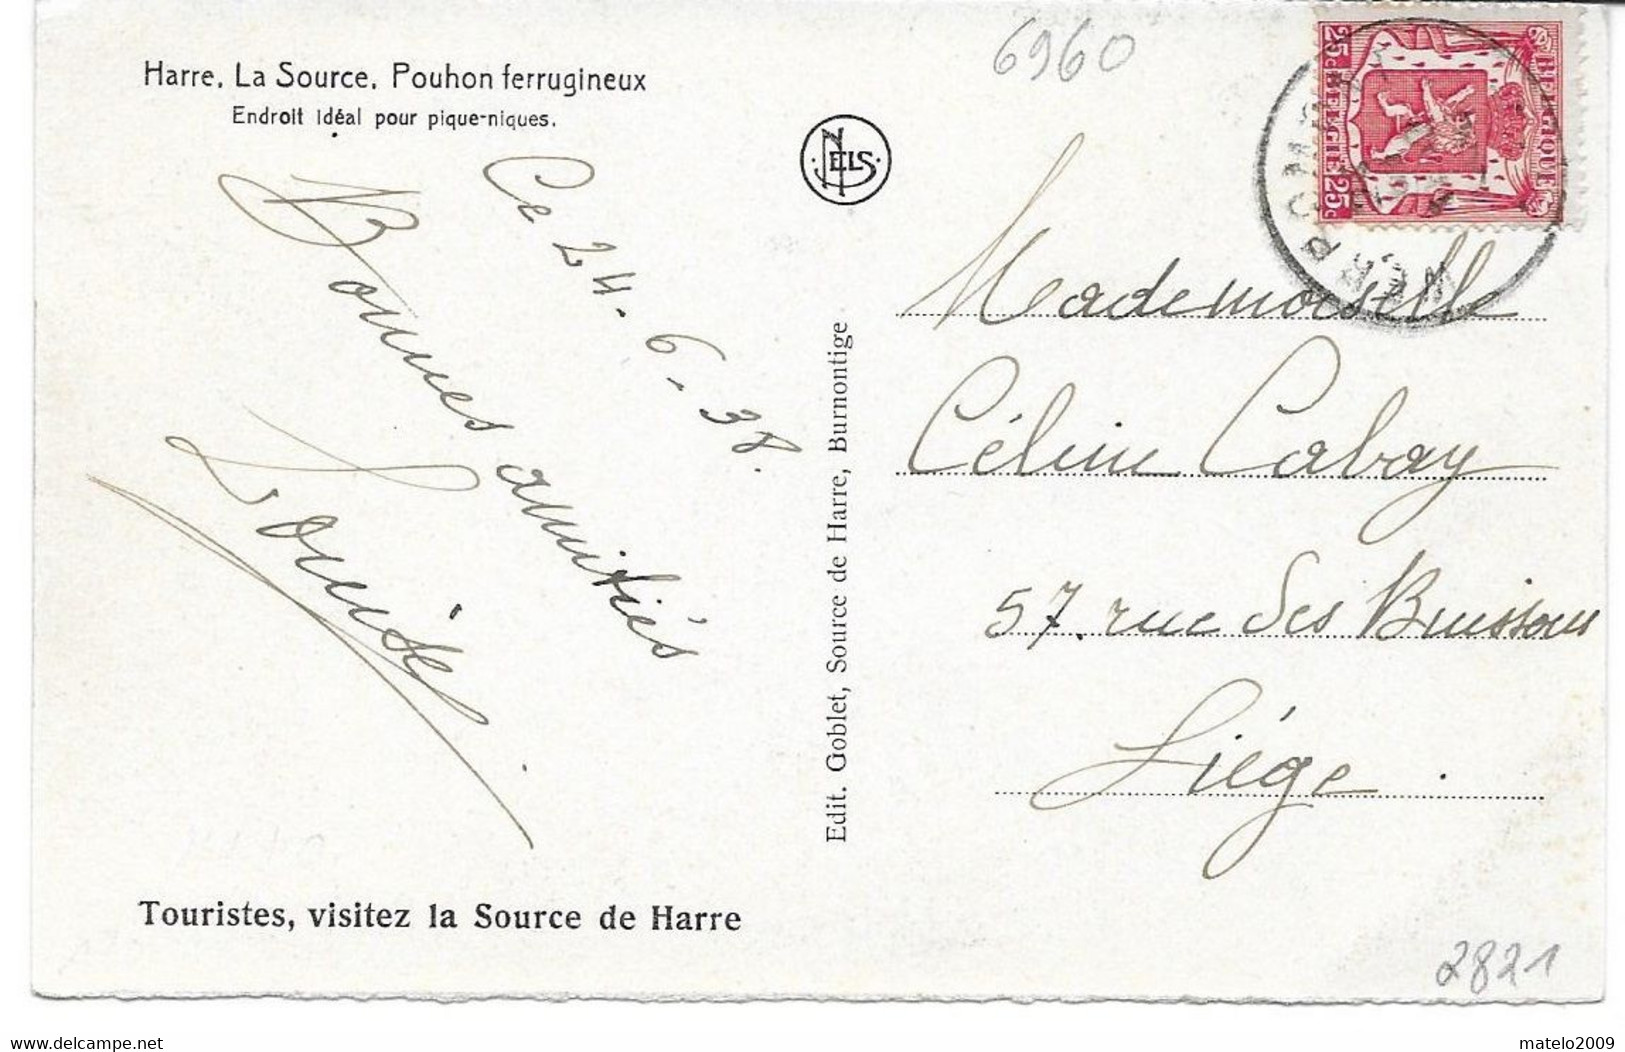 Harre, La Source, Pouhon ferrugineux
Endroit idéal pour pique-niques.
6960
NELS
BELGIQUE
25c BELGIE 25c
WERBOMONT
Ce 24-6-38.
Bonnes amitiés
Mademoiselle
Céline Cabay
57. rue des Buissons
Liége.
Edit. Goblet, Source de Harre, Burnontige
Touristes, visitez la Source de Harre
2821
www.delcampe.net
matelo2009